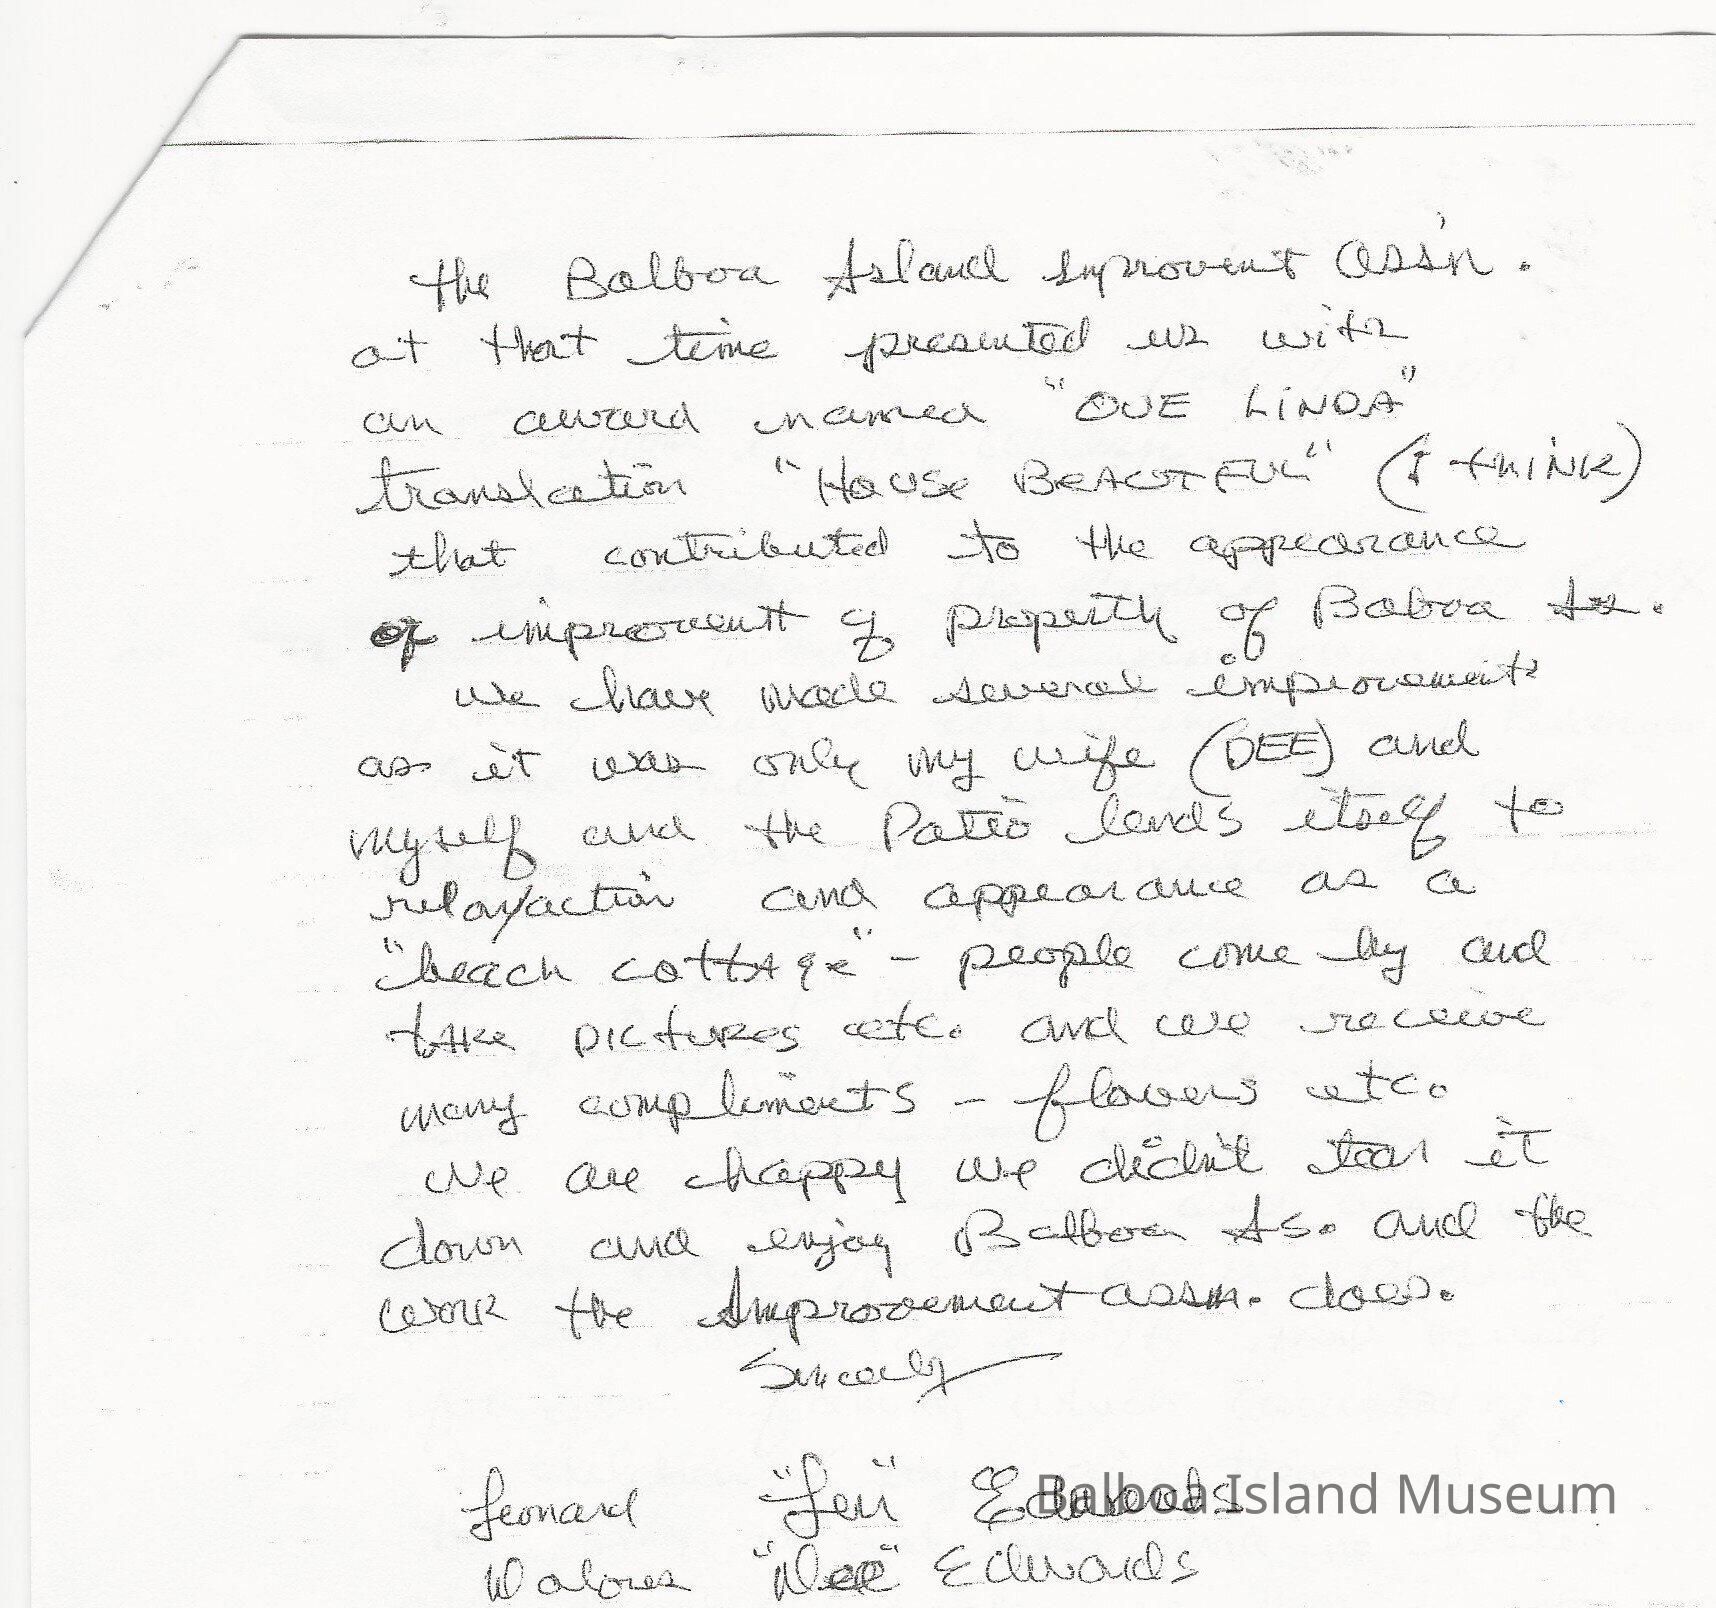 the Balboa Island Improvent Ass'n.
at that time presented us with
an award named "QUE LINDA"
translation "HOUSE BEAUTIFUL" (I THINK)
that contributed to the appearance
of improvent of property of Baboa Is.
we have made several improvements
as it was only my wife (DEE) and
myself and the Patio lends itself to
relaxaction and appearance as a
"beach cottage" - people come by and
take pictures etc. and we receive
many compliments - flowers etc.
We are happy we didn't tear it
down and enjoy Balboa Is. and the
work the Improvement assn. does.
Sincerely
Leonard "Len" Edwards
Balboa Island Museum
Dolores "Dee" Edwards